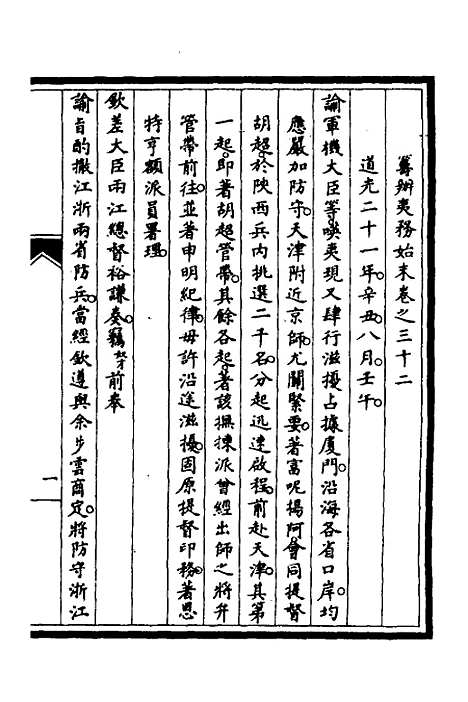 籌辦夷務始末卷之三十二
道光二十一年。辛丑。八月。壬午。
諭軍機大臣等。㗸夷現又肆行滋擾。占據廈門。沿海各省口岸。均
應嚴加防守。天津附近京師。尤關緊要。著富呢揚阿會同提督
胡超。於陝西兵內挑選二千名。分起迅速啟程。前赴天津。其第
一起。即著胡超管帶。其餘各起。著該撫揀派曾經出師之將弁
管帶前往。並著申明紀律。毋許沿途滋擾。固原提督印務。著恩
特亨額派員署理。
欽差大臣兩江總督裕謙奏。竊奴才前奉
諭旨酌撤江浙兩省防兵。當經欽遵與余步雲商定。將防守浙江
一